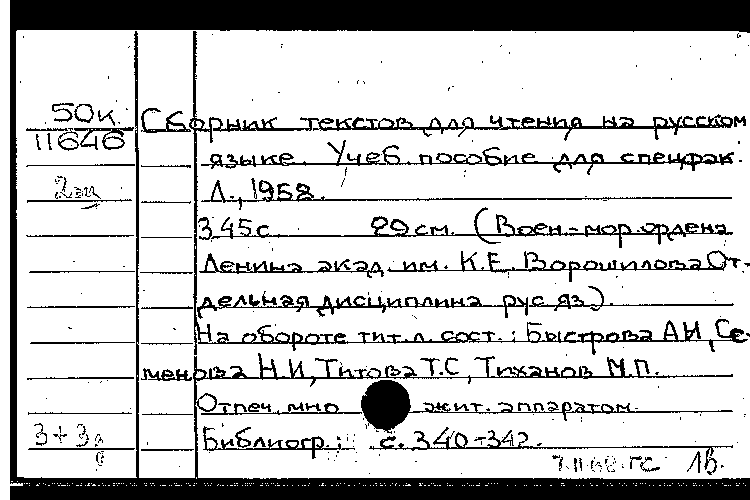 50к Сборник текстов для чтения на русском
11646 языке. Учеб. пособие для спецфак.
2эц Л., 1958.
345с. 29см. (Воен-мор. ордена
Ленина акад. им. К.Е. Ворошилова От-
дельная дисциплина рус яз).
На обороте тит. л. сост.: Быстрова А.И, Се-
менова Н.И, Титова Т.С, Тиханов М.П.
Отпеч. мно жит. аппаратом.
3+3 Библиогр.: с. 340-342.
1в.